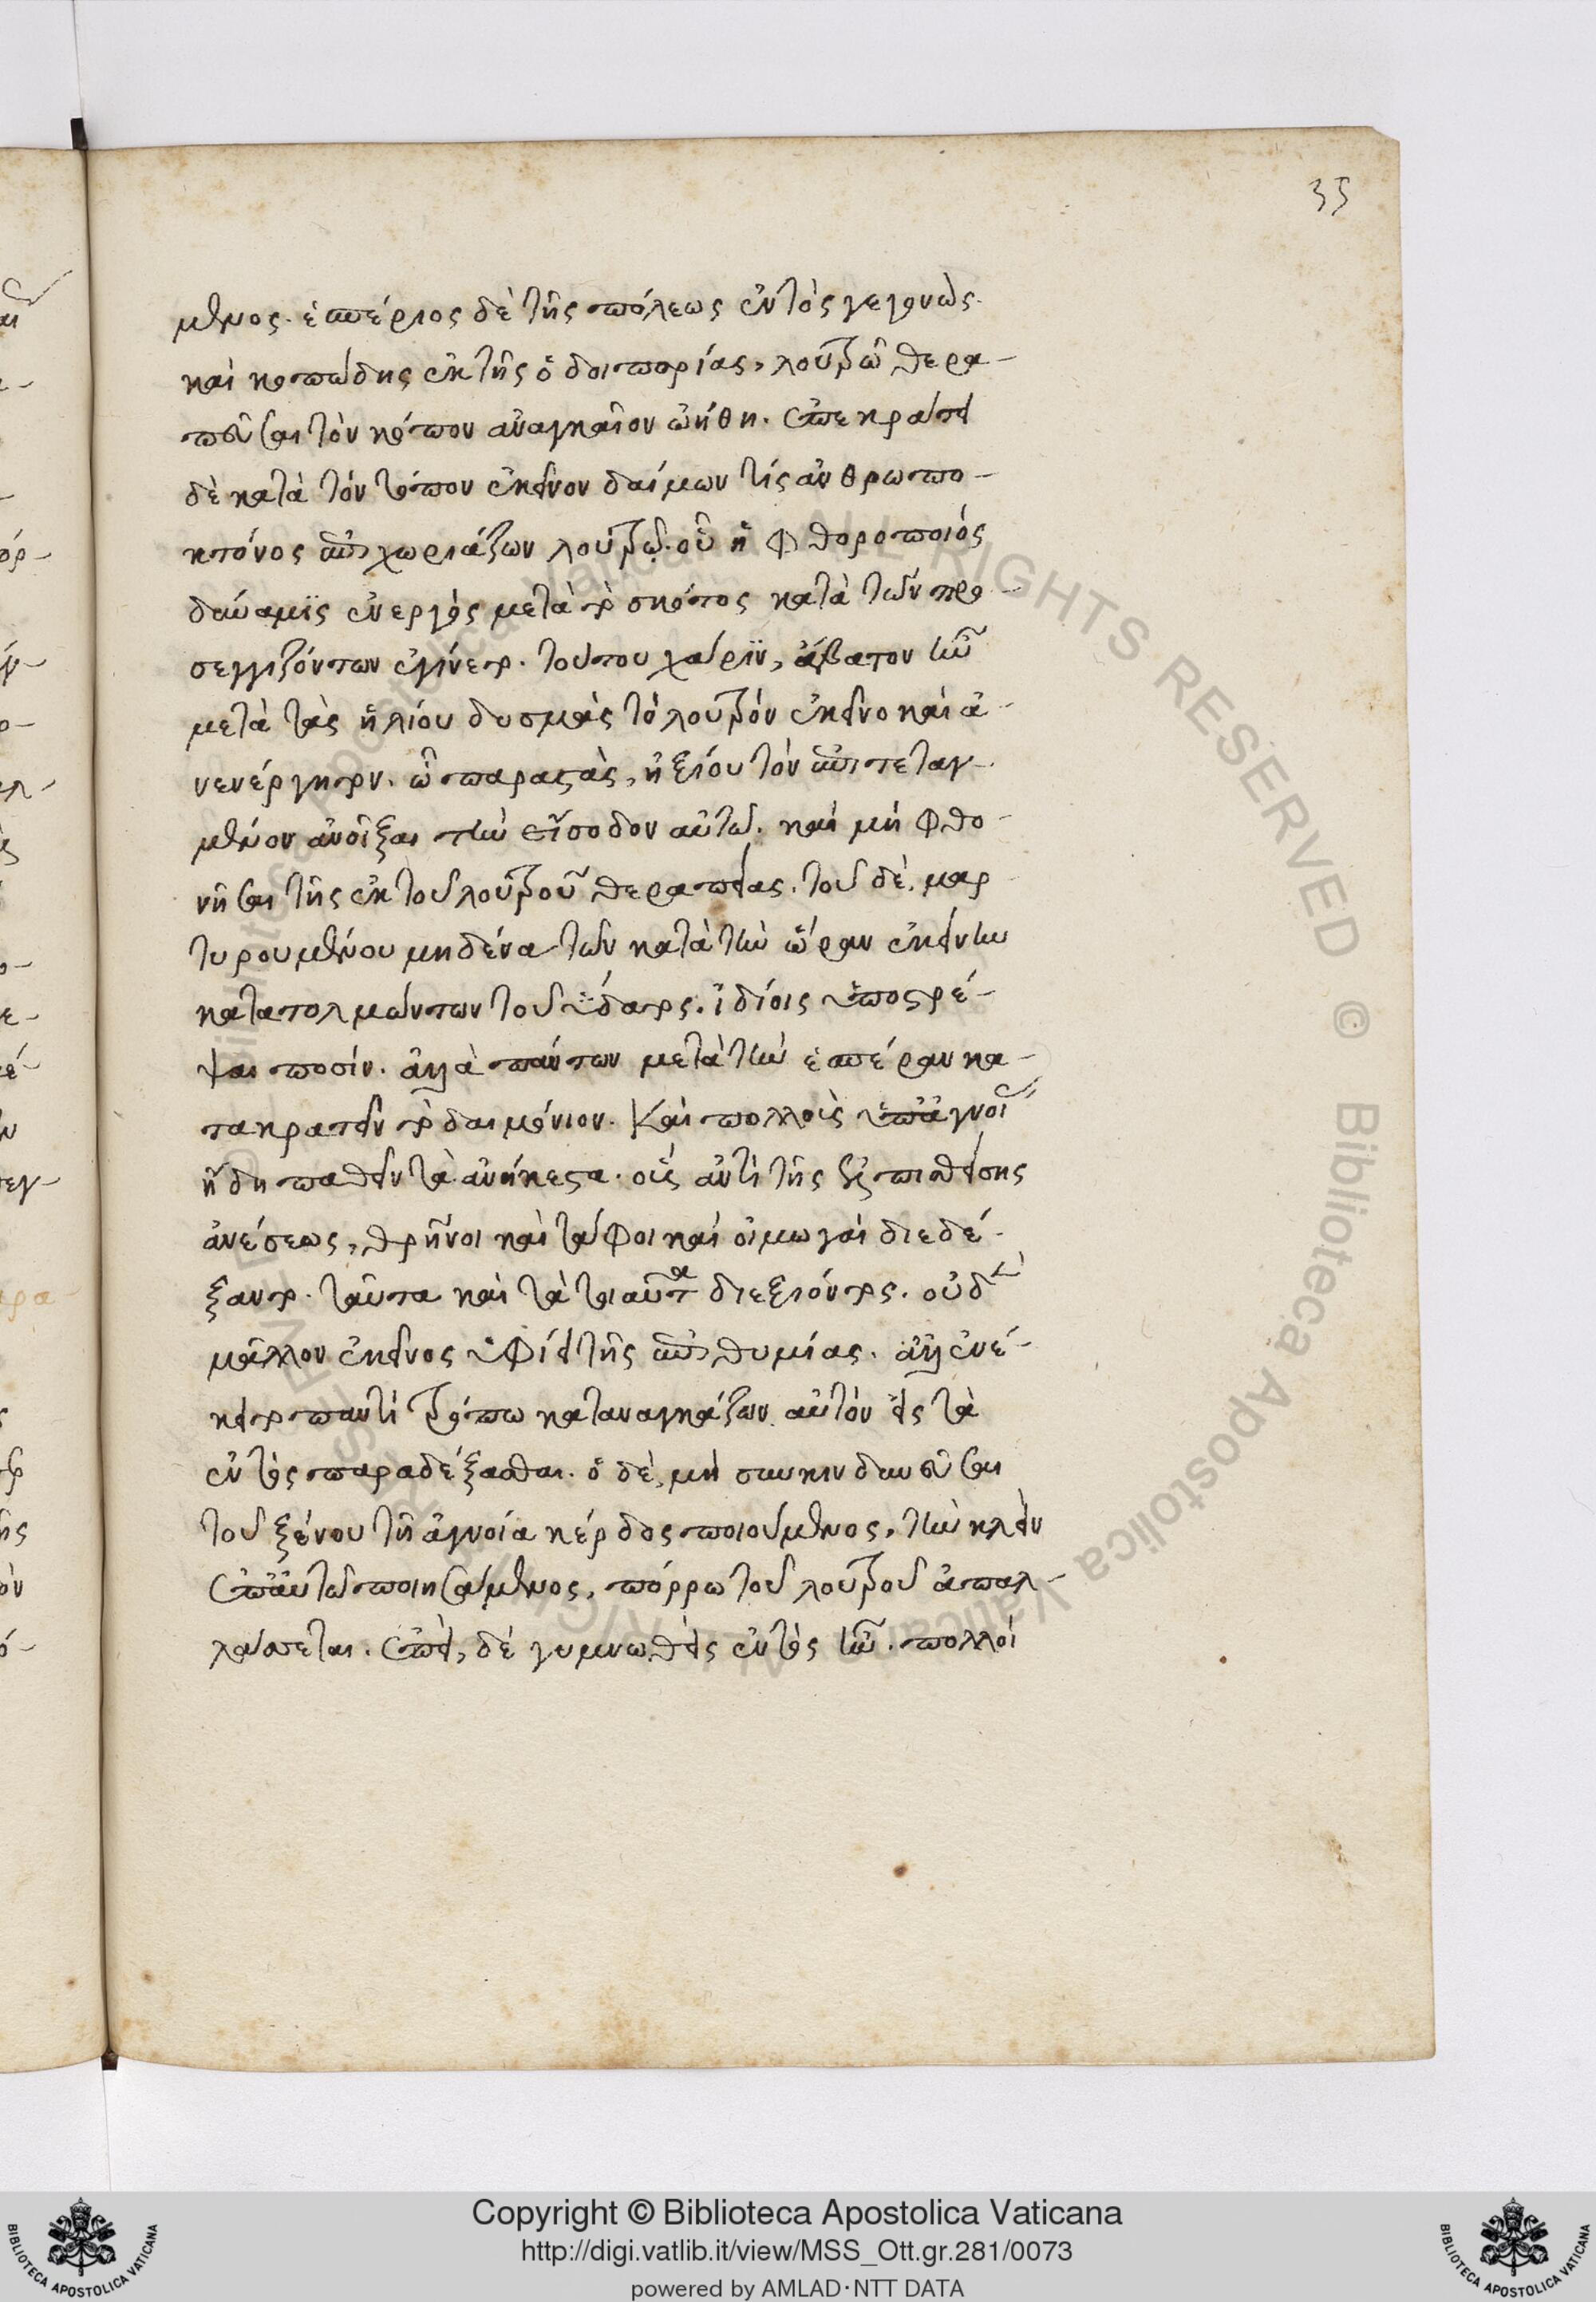 35
μενος. ἑσπέριος δὲ τῆς πόλεως ἐντὸς γεγονὼς.
καὶ κοπώδης ἐκ τῆς ὁδοιπορίας, λουτρῶ θερα-
πεῦσαι τὸν κόπον ἀναγκαῖον ὠήθη. ἐπεκράτει
δὲ κατὰ τὸν τόπον ἐκεῖνον δαίμων τίς ἀνθρωπο-
κτόνος ἐπιχωριάζων λουτρῷ. οὗ ἡ φθοροποιός
δύναμϊς ἐνεργὸς μετὰ τὸ σκότος κατὰ τῶν προ-
σεγγιζόντων ἐγίνετο. τούτου χάρϊν, ἄβατον ἦν
μετὰ τὰς ἡλίου δυσμὰς τὸ λουτρόν ἐκεῖνο καὶ ἀ-
νενέργητον. ὧ παραστὰς, ἠξίου τὸν ἐπιτεταγ-
μένον ἀνοῖξαι τὴν εἴσοδον αὐτῶ. καὶ μὴ φθο-
νῆσαι τῆς ἐκ τοῦ λουτροῦ θεραπείας. τοῦ δὲ, μαρ
τυρουμένου μηδένα τῶν κατὰ τὴν ὥραν ἐκείνην
κατατολμώντων τοῦ ὕδατος. ἰδίοις ὑποστρέ-
ψαι ποσίν. ἀλλὰ πάντων μετὰ τὴν ἑσπέραν κα-
τακρατεῖν τὸ δαιμόνιον. Καὶ πολλοῖς ὑπἀγνοί
ἤδη παθεῖν τὰ ἀνήκεστα. οἷς ἀντὶ τῆς ἐλπισθείσης
ἀνέσεως, θρῆνοι καὶ τάφοι καὶ οἰμωγαὶ διεδέ-
ξαντο. ταῦτα καὶ τὰ τοιαῦτα διεξιόντος. οὐδὲν
μᾶλλον ἐκεῖνος ὑφίει τῆς ἐπιθυμίας. ἀλλ ἐνέ-
κειτο παντὶ τρόπω καταναγκάζων αὐτὸν εἰς τὰ
ἐντὸς παραδέξασθαι. ὁ δὲ, μὴ συγκινδυνεῦσαι
τοῦ ξένου τῆ ἀγνοία κέρδος ποιούμενος, τὴν κλεῖν
ἐπἀυτῶ ποιησάμενος, πόρρω τοῦ λουτροῦ ἀπαλ-
λάττεται. ἐπεὶ, δὲ γυμνωθεὶς ἐντὸς ἦν. πολλοὶ
Copyright © Biblioteca Apostolica Vaticana
http://digi.vatlib.it/view/MSS_Ott.gr.281/0073
powered by AMLAD·NTT DATA